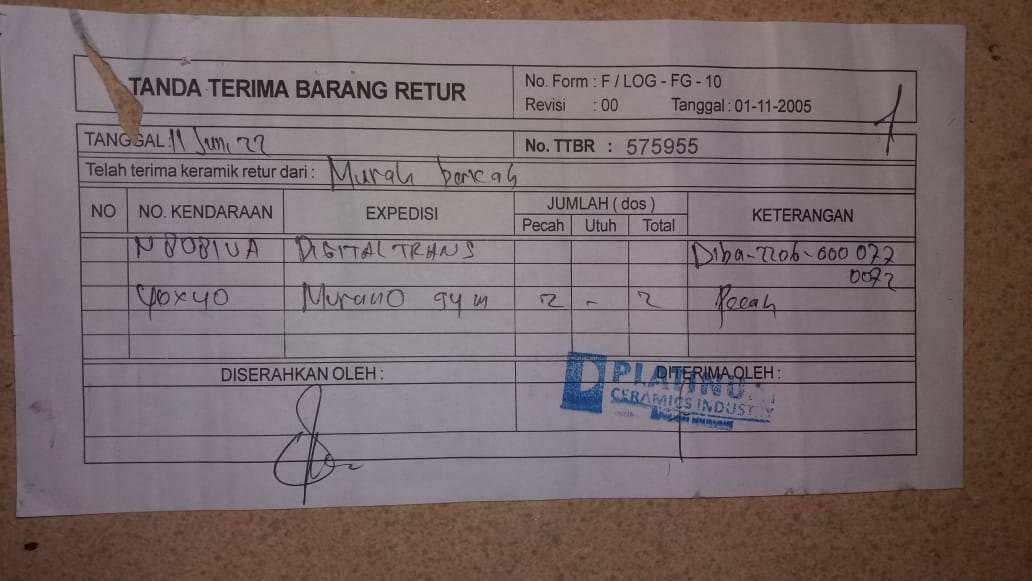 TANDA TERIMA BARANG RETUR
No. Form : F / LOG - FG - 10
Revisi : 00 Tanggal : 01-11-2005
1
TANGGAL : 11 Juni 22
No. TTBR : 575955
Telah terima keramik retur dari : Murah
NO NO. KENDARAAN EXPEDISI JUMLAH ( dos ) KETERANGAN
Pecah Utuh Total
N 8081 UA DIGITAL TRANS Diba-2206-000 072
0072
40x40 Murano 2 - 2 Pecah
DISERAHKAN OLEH : DITERIMA OLEH :
PLATINU
CERAMICS INDUSTRY